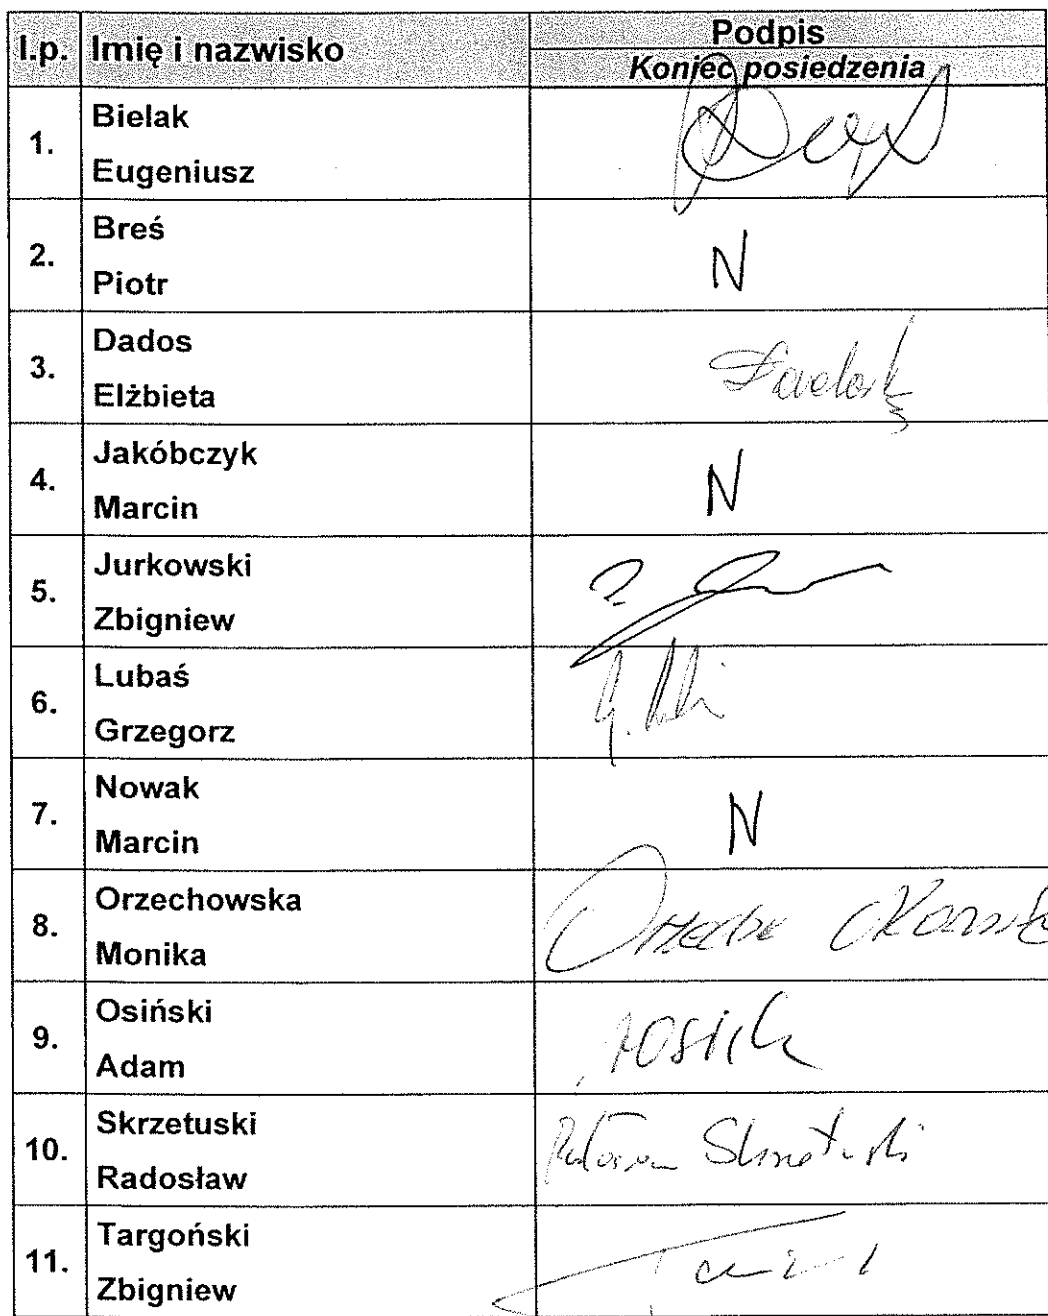 l.p. Imię i nazwisko Podpis
Koniec posiedzenia
1. Bielak
Eugeniusz
2. Breś
Piotr N
3. Dados
Elżbieta
4. Jakóbczyk
Marcin N
5. Jurkowski
Zbigniew
6. Lubaś
Grzegorz
7. Nowak
Marcin N
8. Orzechowska
Monika
9. Osiński
Adam
10. Skrzetuski
Radosław
11. Targoński
Zbigniew